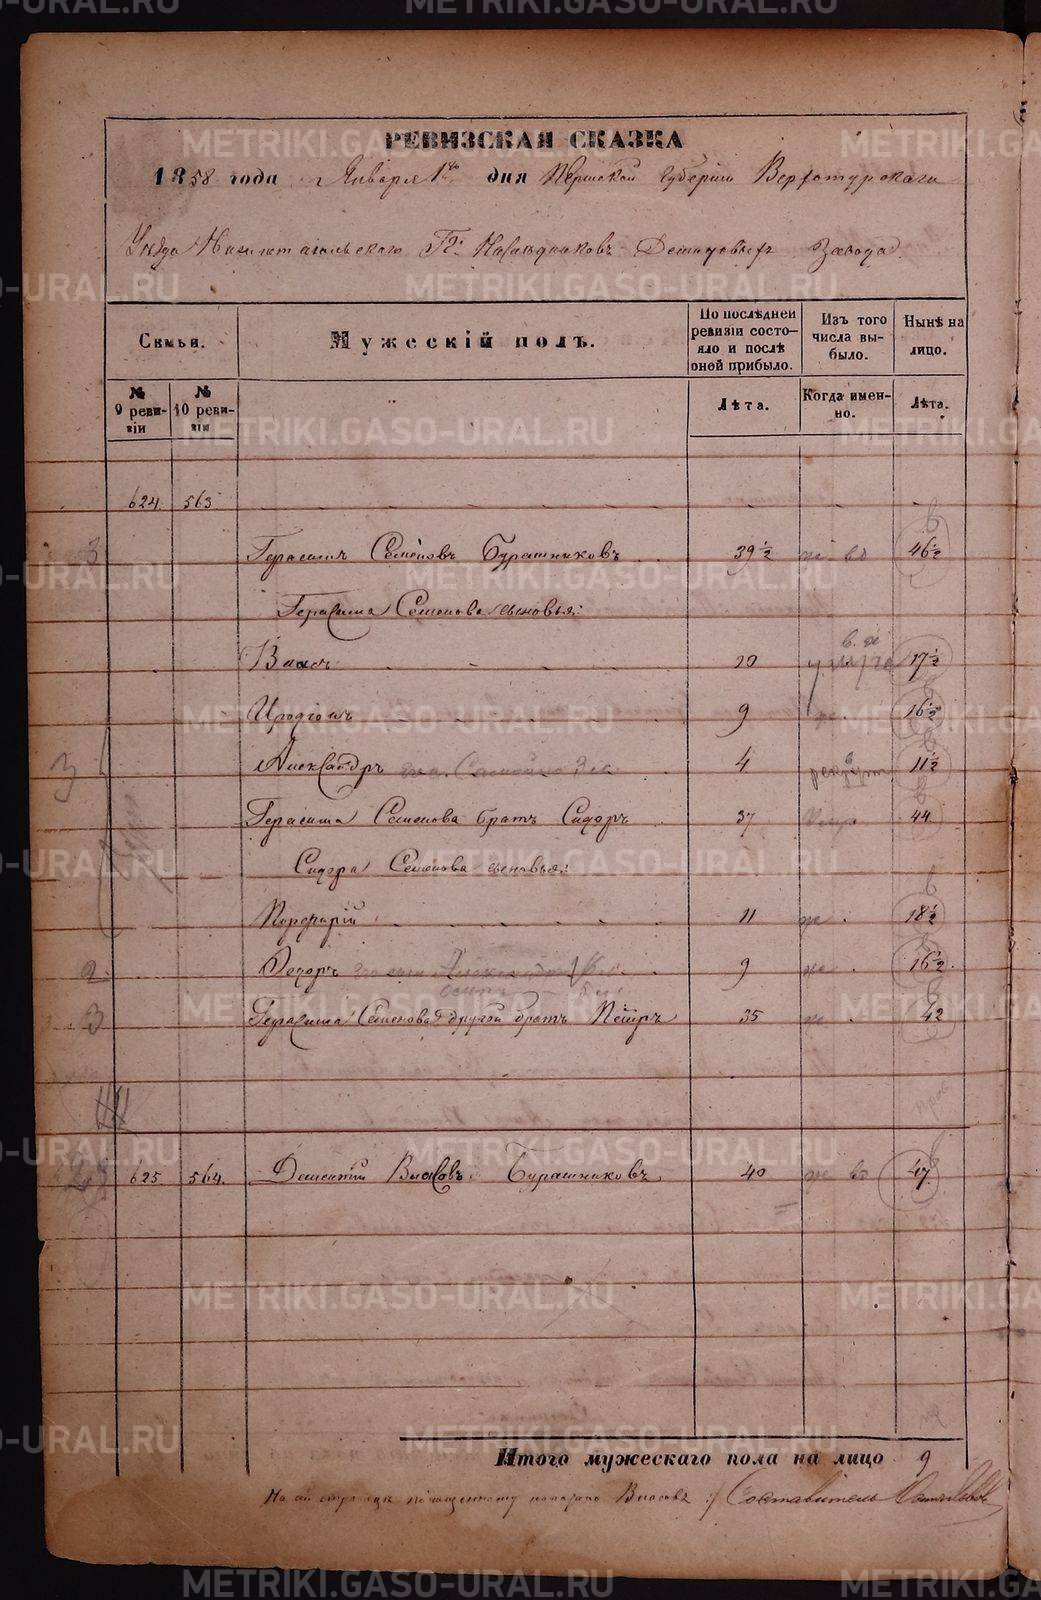 РЕВИЗСКАЯ СКАЗКА
1858 года Января 1го дня Пермской Губернiи Верхотурскаго
Уѣзда Нижнетагильскаго Гг. Наслѣдниковъ Демидовыхъ Завода
Семьи.
Мужескiй полъ.
По послѣдней ревизiи состояло и послѣ оной прибыло.
Изъ того числа выбыло.
Нынѣ на лицо.
№ 9 ревизiи
№ 10 ревизiи
Лѣта.
Когда именно.
Лѣта.
624 563
Герасимъ Семеновъ Бурашниковъ 39½ 46½
Герасима Семенова сыновья:
Власъ 10 17½
Иродiонъ 9 16½
Александръ 4 рекрут 11½
Герасима Семенова братъ Сидоръ 37 44
Сидора Семенова сыновья:
Порфирiй 11 18½
Ѳедоръ 9 16½
Герасима Семенова другой братъ Петръ 35 42
625 564 Дементiй Власовъ Бурашниковъ 40 47
Итого мужескаго пола на лицо 9
На сей страницѣ по чищенному написано Власовъ Составитель
METRIKI.GASO-URAL.RU